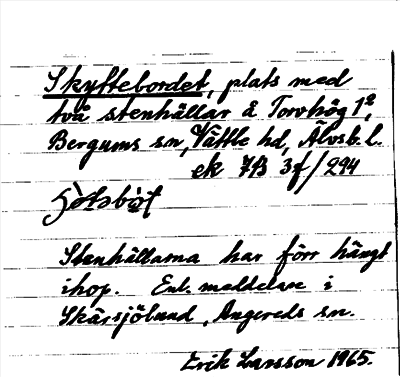 Skyftebordet, plats med
två stenhällar å Torvhög 1²,
Bergums sn, Vättle hd, Älvsb. l.
ek 7B 3f/294
Stenhällarna har förr hängt
ihop. Enl. meddelare i
Skärsjölund, Angereds sn.
Erik Larsson 1965.